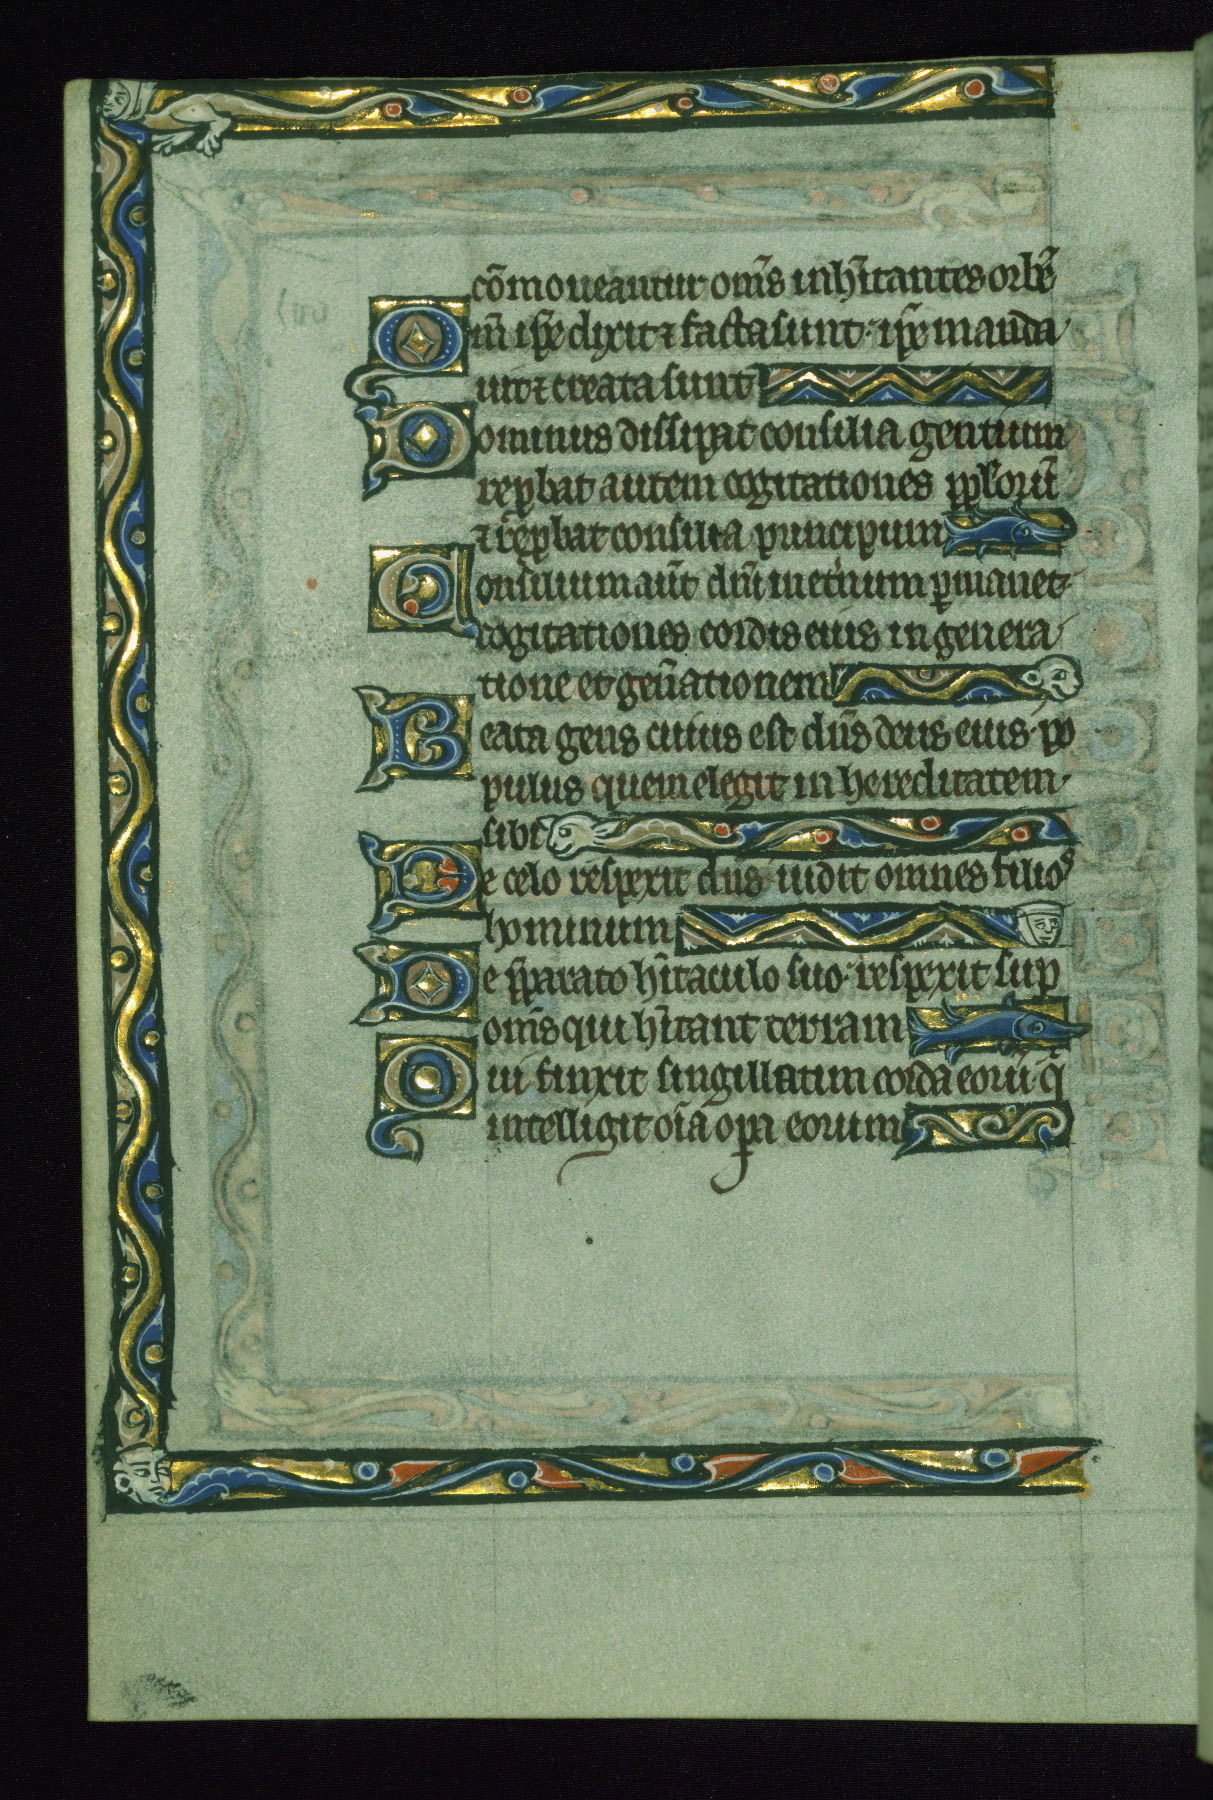 cōmoueantur om̄s inh̄itantes orbē
Qm̄ ip̄e dixit ⁊ facta sunt· ip̄e manda
uit ⁊ creata sunt
Dominus dissipat consilia gentium
rep̄bat autem cogitationes pp̄lorū
⁊ rep̄bat consilia principum
Consilium aūt dn̄i inet̄num p̄manet·
cogitationes cordis eius in genera
tione et gen̄ationem
Beata gens cuius est dn̄s deus eius· po
pulus quem elegit in hereditatem·
sibi
De celo respexit dn̄s uidit omnes filios
hominum
De p̄parato h̄itaculo suo· respexit sup
om̄s qui h̄itant terram
Qui finxit singillatim corda eorū· q̄
intelligit oīa opa eorum